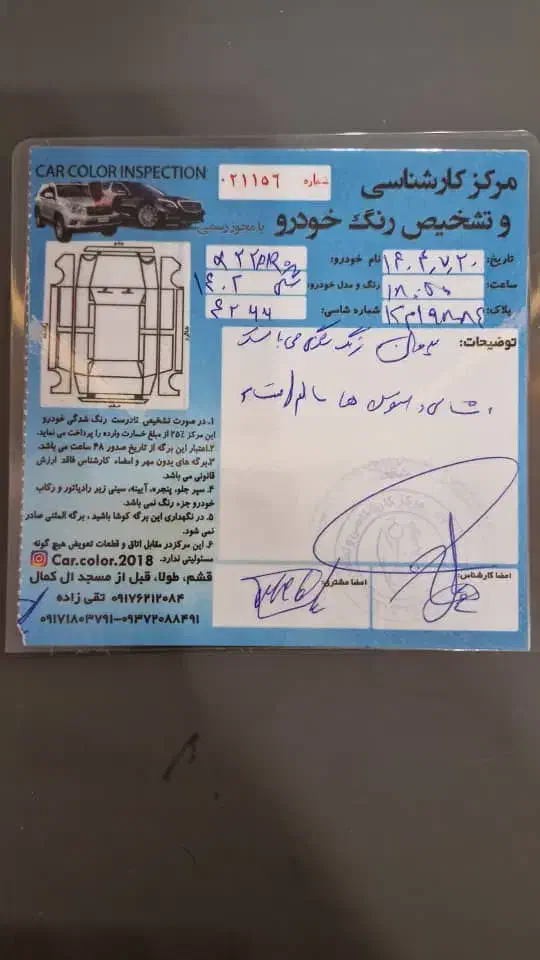 CAR COLOR INSPECTION
شماره ۰۲۱۱۵۶
مرکز کارشناسی
و تشخیص رنگ خودرو
با مجوز رسمی
تاریخ: ۱۴۰۴,۷,۲۰
نام خودرو:
ساعت: ۱۸:۵۵
رنگ و مدل خودرو: ۱۴۰۲
پلاک:
شماره شاسی: ۴۲۷۷
توضیحات:
رنگ می باشد
ها سالم
۱. در صورت تشخیص نادرست رنگ شدگی خودرو
این مرکز ۲۵٪ از مبلغ خسارت وارده را پرداخت می نماید.
۲.اعتبار این برگه از تاریخ صدور ۴۸ ساعت می باشد.
۳.برگه های بدون مهر و امضاء کارشناس فاقد ارزش
قانونی می باشد.
۴. سپر جلو، پنجره، آیینه، سینی زیر رادیاتور و رکاب
خودرو جزء رنگ نمی باشد.
۵. در نگهداری این برگه کوشا باشید ، برگه المثنی صادر
نمی شود.
۶. این مرکزدر مقابل اتاق و قطعات تعویض هیچ گونه
مسئولیتی ندارد.
Car.color.2018
قشم، طولا، قبل از مسجد ال کمال
۰۹۱۷۶۲۱۲۰۸۴ تقی زاده
۰۹۱۷۱۸۰۳۷۹۱-۰۹۳۷۲۰۸۸۴۹۱
امضا کارشناس:
امضا مشتری: